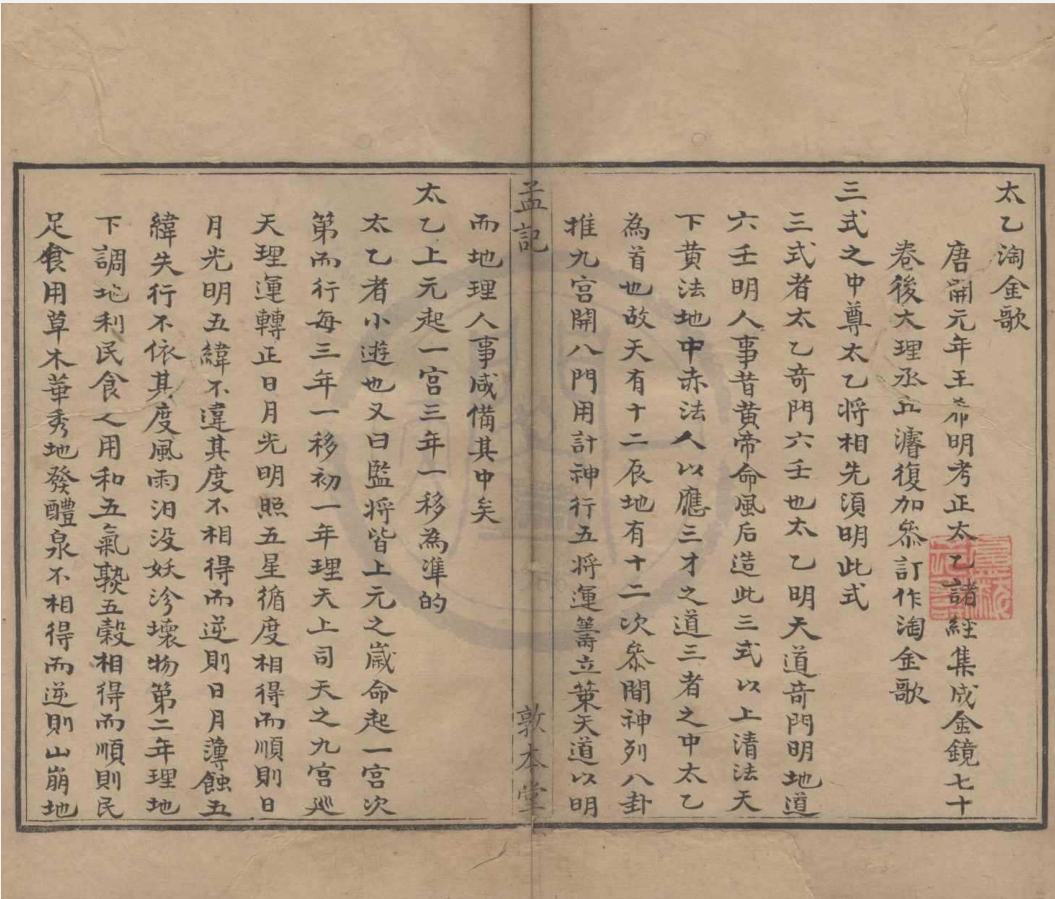 太乙淘金歌
唐開元年王希明考正太乙諸經集成金鏡七十
卷後大理丞丘濬復加叅訂作淘金歌
三式之中尊太乙將相先須明此式
三式者太乙奇門六壬也太乙明天道奇門明地道
六壬明人事昔黃帝命風后造此三式以上清法天
下黃法地中赤法人以應三才之道三者之中太乙
為首也故天有十二辰地有十二次叅間神列八卦
推九宮開八門用計神行五將運籌立策天道以明
而地理人事咸備其中矣
孟記
敦本堂
太乙上元起一宮三年一移為準的
太乙者小遊也又曰監將皆上元之歲命起一宮次
第而行每三年一移初一年理天上司天之九宮巡
天理運轉正日月光明照五星循度相得而順則日
月光明五緯不違其度不相得而逆則日月薄蝕五
緯失行不依其度風雨汨没妖沴壞物第二年理地
下調地利民食人用和五氣熟五穀相得而順則民
足食用草木華秀地發醴泉不相得而逆則山崩地